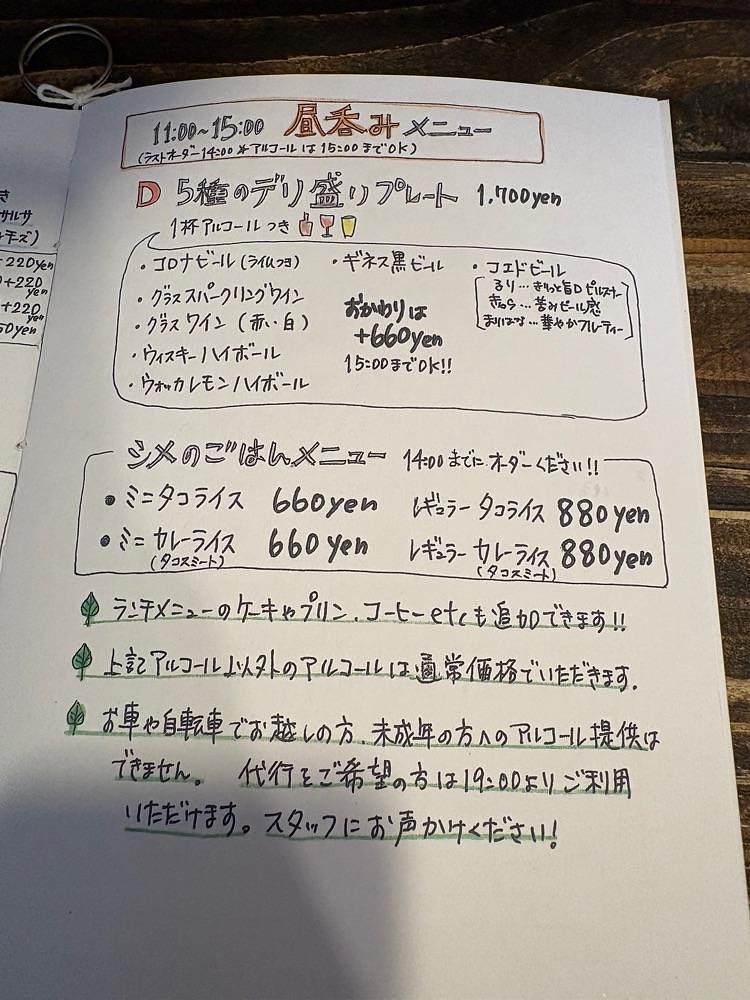 11:00~15:00 昼呑みメニュー
(ラストオーダー14:00 ※アルコールは15:00までOK)
D 5種のデリ盛りプレート 1,700yen
1杯アルコールつき
・コロナビール(ライムつき)
・グラススパークリングワイン
・グラスワイン(赤・白)
・ウィスキーハイボール
・ウォッカレモンハイボール
・ギネス黒ビール
おかわりは
+660yen
15:00までOK!!
・コエドビール
るり…きりっと旨口ピルスナー
きゃら…苦みビール感
まりはな…華やかフルーティー
シメのごはんメニュー 14:00までにオーダーください!!
・ミニタコライス 660yen レギュラータコライス 880yen
・ミニカレーライス 660yen レギュラーカレーライス 880yen
(タコスミート) (タコスミート)
ランチメニューのケーキやプリン、コーヒーetcも追加できます!!
上記アルコール以外のアルコールは通常価格でいただきます。
お車や自転車でお越しの方、未成年の方へのアルコール提供は
できません。 代行をご希望の方は19:00よりご利用
いただけます。スタッフにお声かけください!
サルサ
チーズ)
+220yen
+220
yen
+220
yen